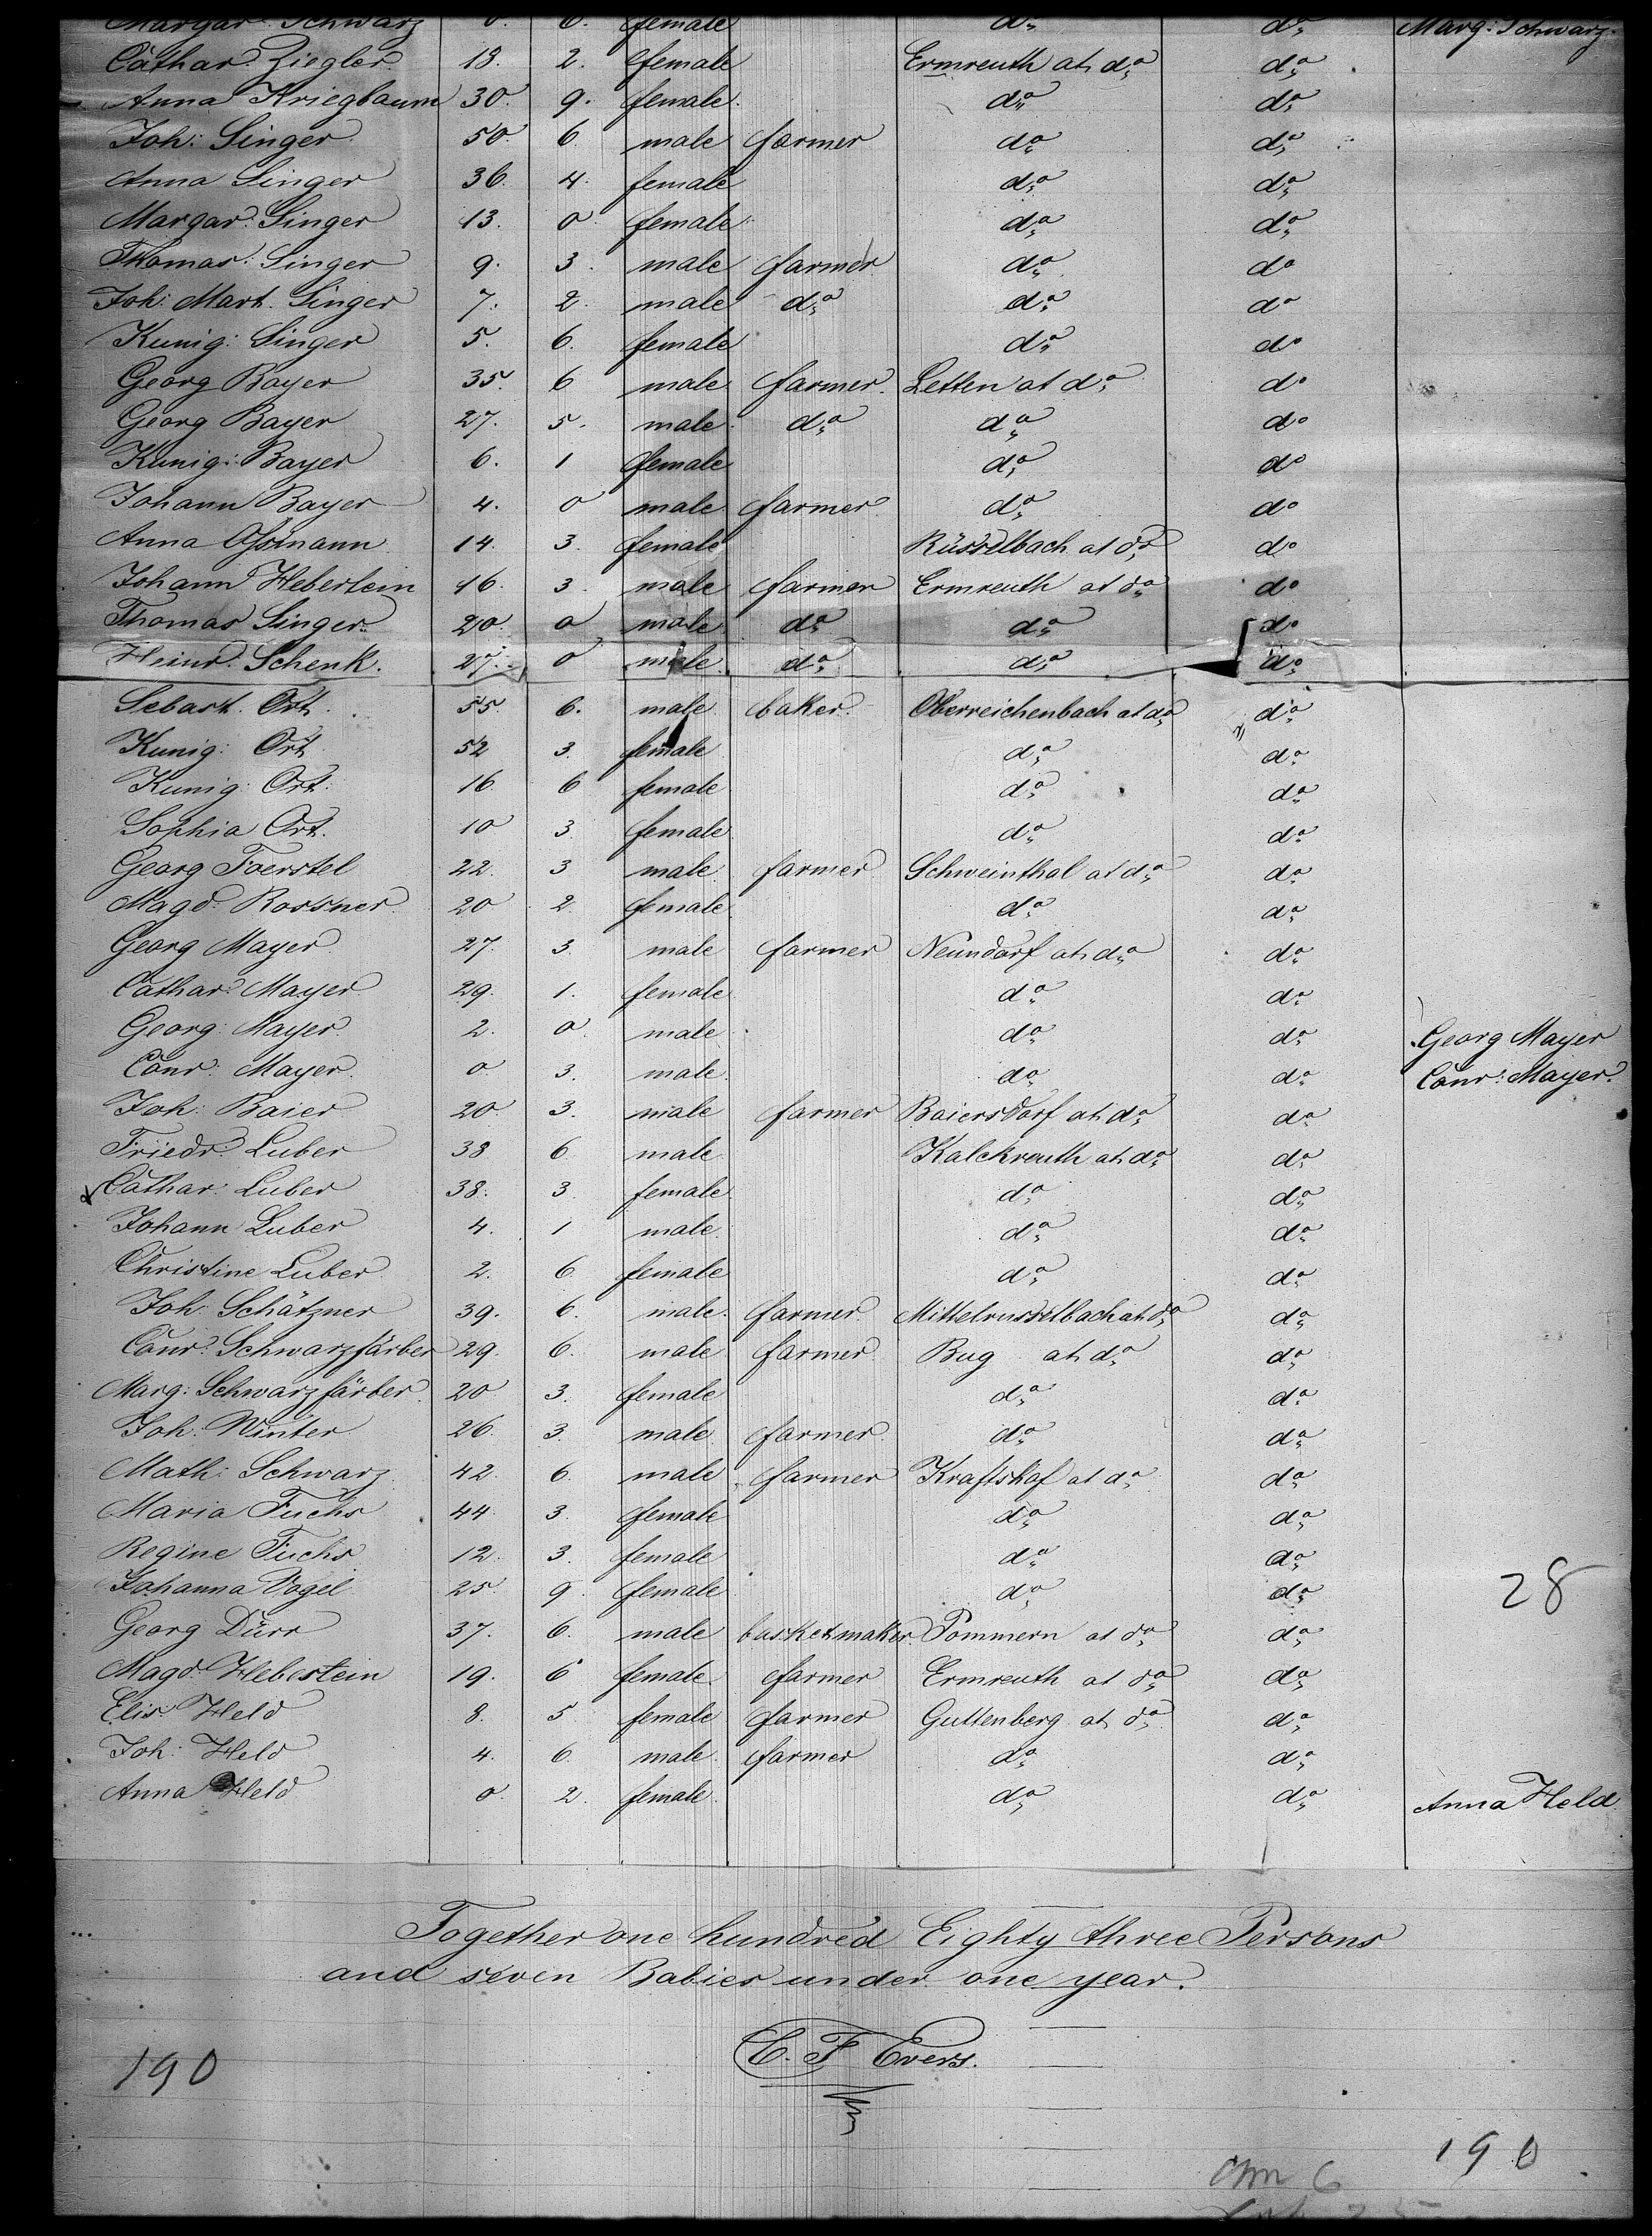 Margar: Schwarz 0. 6. female do do Marg: Schwarz.
Cathar: Ziegler 18. 2. female Ermreuth at do do
Anna Kriegbaum 30. 9. female do do
Joh: Singer 50. 6. male farmer do do
Anna Singer 36. 4. female do do
Margar: Singer 13. 0 female do do
Thomas: Singer 9. 3. male farmer do do
Joh: Mart. Singer 7. 2. male do do do
Kunig: Singer 5. 6. female do do
Georg Bayer 35. 6 male farmer. Letten at do do
Georg Bayer 27. 5. male do do do
Kunig: Bayer 6. 1 female do do
Johann Bayer 4. 0 male farmer do do
Anna Assmann 14. 3. female Küsselbach at do do
Johann Heberlein 16. 3. male farmer Ermreuth at do do
Thomas Singer 20. 0 male do do do
Heinr. Schenk. 27. 0 male do do do
Sebast. Ort. 55. 6. male baker. Oberreichenbach at do do
Kunig: Ort 52 3. female do do
Kunig: Ort: 16. 6 female do do
Sophia Ort. 10 3. female do do
Georg Foerstel 22. 3 male farmer Schweinthal at do do
Magd: Rossner 20 2. female do do
Georg Mayer 27. 3. male farmer Neundorf at do do
Cathar: Mayer 29. 1. female do do
Georg: Mayer 2. 0. male do do Georg Mayer
Conr: Mayer. 0 3. male do do Conr: Mayer.
Joh: Baier 20. 3. male farmer Baiersdorf at do do
Friedr: Luber 38 6. male Kalckreuth at do do
Cathar: Luber 38. 3. female do do
Johann Luber 4. 1 male. do do
Christine Luber 2. 6. female do do
Joh: Schätzner 39. 6. male. farmer. Mittelrusselbach at do do
Conr: Schwarzfärber 29. 6. male farmer Bug at do do
Marg: Schwarzfärber. 20 3. female do do
Joh: Winter 26. 3. male farmer do do
Math: Schwarz 42. 6. male farmer Kraftshof at do do
Maria Fuchs 44. 3. female do do
Regine Fuchs 12. 3. female do do
Johanna Vogel 25. 9. female do do 28
Georg Dürr 37. 6. male basketmaker Pommern at do do
Magd: Heberlein 19. 6 female. farmer Ermreuth at do do
Elis: Held 8. 5 female farmer Guttenberg at do do
Joh: Held 4. 6. male. farmer do do
Anna Held 0. 2. female. do do Anna Held
Together one hundred Eighty three Persons
and seven Babies under one year.
C. F. Evers.
190
190